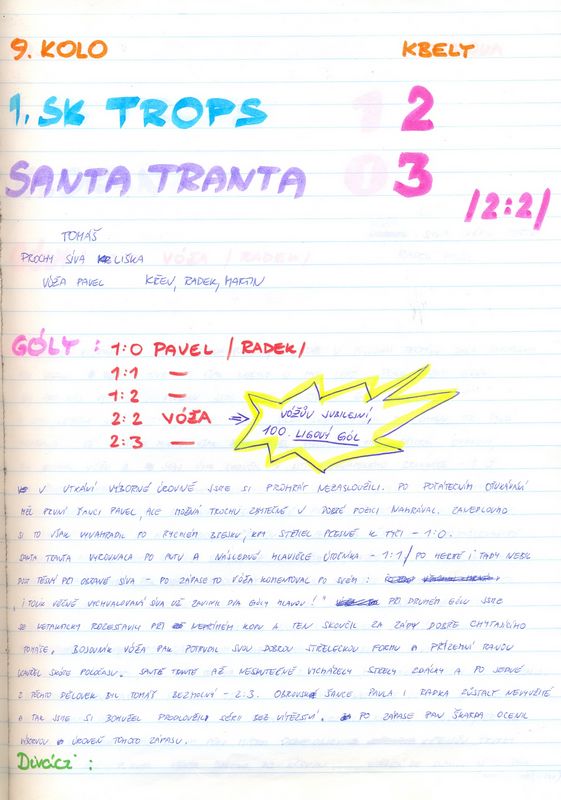 9. KOLO KBELY
1. SK TROPS 2
SANTA TRANTA 3
/2:2/
TOMÁŠ
PROCHY SÍVA LIŠKA
VÓŽA PAVEL KŘEN, RADEK, MARTIN
GÓLY : 1:0 PAVEL /RADEK/
1:1 —
1:2 —
2:2 VÓŽA ⇒ VÓŽŮV JUBILEJNÍ,
2:3 — 100. LIGOVÝ GÓL
V UTKÁNÍ VÝBORNÉ ÚROVNĚ JSME SI PROHRÁT NEZASLOUŽILI. PO POČÁTEČNÍM OŤUKÁVÁNÍ
MĚL PRVNÍ ŠANCI PAVEL, ALE MOŽNÁ TROCHU ZBYTEČNĚ V DOBRÉ POZICI NAHRÁVAL. ZANEDLOUHO
SI TO VŠAK VYNAHRADIL PO RYCHLÉM BREJKU, KDY STŘELIL PŘESNĚ K TYČI - 1:0.
SANTA TRANTA VYROVNALA PO AUTU A NÁSLEDNÉ HLAVIČCE ÚTOČNÍKA - 1:1/ PO HERNÍ I TADY NEBYL
TĚSNÝ PŘI OBRANĚ SÍVA - PO ZÁPASE TO VÓŽA KOMENTOVAL PO SVÉM :
„I TOHO VĚČNĚ VYCHVALOVANÝ SÍVA UŽ ZAVINIL DVA GÓLY HLAVOU!" PŘI DRUHÉM GÓLU JSME
SE NETAKTICKY ROZESTAVILI PŘI NEPŘÍMÉM KOPU A TEN SKONČIL ZA ZÁDY DOBŘE CHYTAJÍCÍHO
TOMÁŠE. BOJOVNÍK VÓŽA PAK POTVRDIL SVOU DOBROU STŘELECKOU FORMU A PŘÍZEMNÍ RANOU
UZAVŘEL SKÓRE POLOČASU. SANTĚ TRANTĚ AŽ NESKUTEČNĚ VYCHÁZELY STŘELY ZDÁLKY A PO JEDNÉ
Z TĚCHTO DĚLOVEK BYL TOMÁŠ BEZMOCNÝ - 2:3. OBROVSKÉ ŠANCE PAVLA I RADKA ZŮSTALY NEVYUŽITÉ
A TAK JSME SI BOHUŽEL PRODLOUŽILI SÉRII BEZ VÍTĚZSTVÍ. PO ZÁPASE PAN ŠKARDA OCENIL
ÚROVEŇ TOHOTO ZÁPASU.
Diváci :